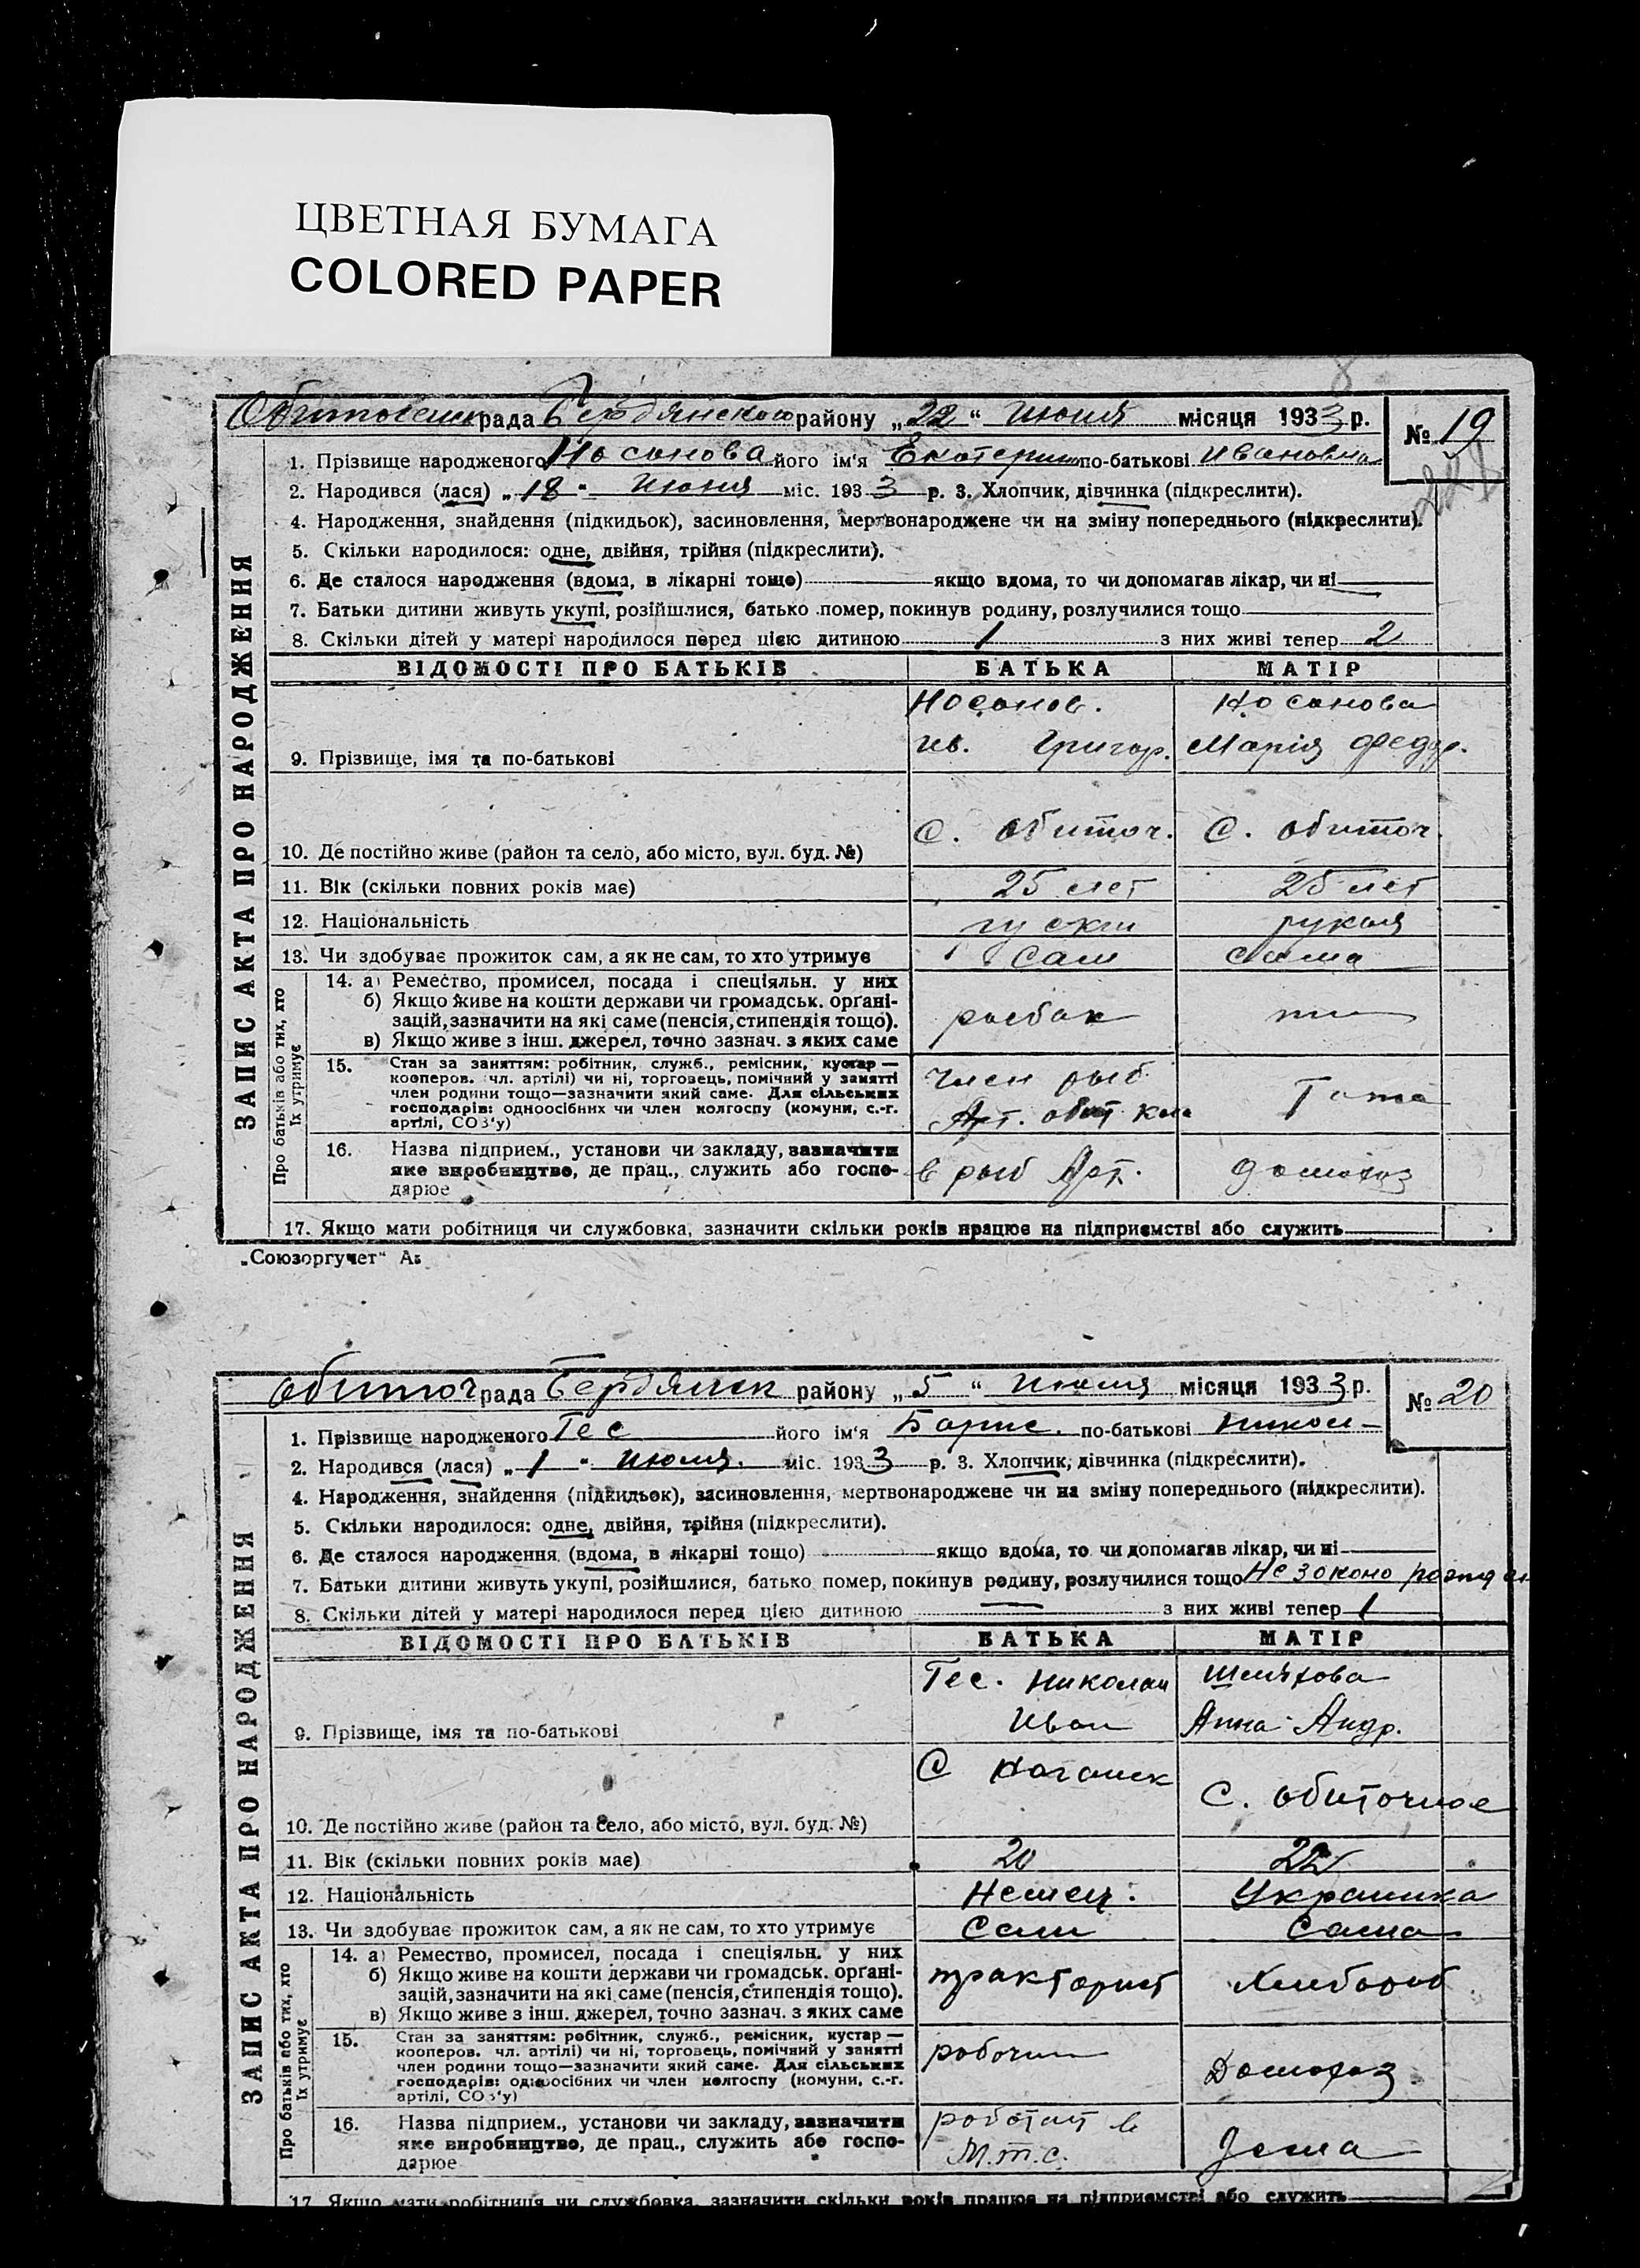 ЦВЕТНАЯ БУМАГА
COLORED PAPER
рада Бердянского району „22“ Июня місяця 1933 р.
№ 19
1. Прізвище народженого Носонова його ім'я Екатерин по-батькові Ивановна
2. Народився (лася) „18“ Июня міс. 1933 р. 3. Хлопчик, дівчинка (підкреслити).
4. Народження, знайдення (підкидьок), засиновлення, мертвонароджене чи на зміну попереднього (підкреслити).
5. Скільки народилося: одне, двійня, трійня (підкреслити).
6. Де сталося народження (вдома, в лікарні тощо) якщо вдома, то чи допомагав лікар, чи ні
7. Батьки дитини живуть укупі, розійшлися, батько помер, покинув родину, розлучилися тощо
8. Скільки дітей у матері народилося перед цією дитиною 1 з них живі тепер 2
ВІДОМОСТІ ПРО БАТЬКІВ БАТЬКА МАТІР
Носонов. Носонова
9. Прізвище, імя та по-батькові Ив. Григор. Марія Федор.
10. Де постійно живе (район та село, або місто, вул. буд. №) С. Обиточ. С. Обиточ.
11. Вік (скільки повних років має) 25 лет 25 лет
12. Національність
13. Чи здобуває прожиток сам, а як не сам, то хто утримує Сам Сама
14. а) Ремество, промисел, посада і спеціяльн. у них
б) Якщо живе на кошти держави чи громадськ. орґані-
зацій, зазначити на які саме (пенсія, стипендія тощо). рыбак
в) Якщо живе з інш. джерел, точно зазнач. з яких саме
15. Стан за заняттям: робітник, служб., ремісник, кустар —
кооперов. (чл. артілі) чи ні, торговець, помічний у занятті
член родини тощо—зазначити який саме. Для сільських
господарів: одноосібних чи член колгоспу (комуни, с.-г.
артілі, СОЗ'у)
Член рыб
Арт. обит
16. Назва підприєм., установи чи закладу, зазначити
яке виробництво, де прац., служить або госпо-
дарює
в рыб Арт. домохоз
17. Якщо мати робітниця чи службовка, зазначити скільки років працює на підприємстві або служить
ЗАПИС АКТА ПРО НАРОДЖЕННЯ
Про батьків або тих, хто їх утримує
„Союзоргучет“
Обиточ рада Бердянск району „5“ Июля місяця 1933 р.
№ 20
1. Прізвище народженого Гес його ім'я Борис. по-батькові Никол-
2. Народився (лася) „1“ Июля. міс. 1933 р. 3. Хлопчик, дівчинка (підкреслити).
4. Народження, знайдення (підкидьок), засиновлення, мертвонароджене чи на зміну попереднього (підкреслити).
5. Скільки народилося: одне, двійня, трійня (підкреслити).
6. Де сталося народження (вдома, в лікарні тощо) якщо вдома, то чи допомагав лікар, чи ні
7. Батьки дитини живуть укупі, розійшлися, батько помер, покинув родину, розлучилися тощо Не законо
8. Скільки дітей у матері народилося перед цією дитиною — з них живі тепер 1
ВІДОМОСТІ ПРО БАТЬКІВ БАТЬКА МАТІР
Гес. Николай Шляхова
9. Прізвище, імя та по-батькові Иван Анна Андр.
С Ногайск
10. Де постійно живе (район та село, або місто, вул. буд. №) С. Обиточное
11. Вік (скільки повних років має) 20 22
12. Національність Немец. Украинка
13. Чи здобуває прожиток сам, а як не сам, то хто утримує Сам Сама
14. а) Ремество, промисел, посада і спеціяльн. у них
б) Якщо живе на кошти держави чи громадськ. орґані-
зацій, зазначити на які саме (пенсія, стипендія тощо). тракторист Хлебороб
в) Якщо живе з інш. джерел, точно зазнач. з яких саме
15. Стан за заняттям: робітник, служб., ремісник, кустар —
кооперов. чл. артілі) чи ні, торговець, помічний у занятті
член родини тощо—зазначити який саме. Для сільських
господарів: одноосібних чи член колгоспу (комуни, с.-г.
артілі, СОЗ'у)
робочий Домохоз
16. Назва підприєм., установи чи закладу, зазначити
яке виробництво, де прац., служить або госпо-
дарює
работает в
М.т.с.
17. Якщо мати робітниця чи службовка, зазначити скільки років працює на підприємстві або служить
ЗАПИС АКТА ПРО НАРОДЖЕННЯ
Про батьків або тих, хто їх утримує